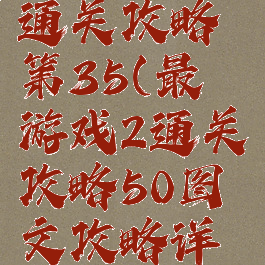 通关攻略
第35(最
游戏2通关
攻略50图
文攻略详